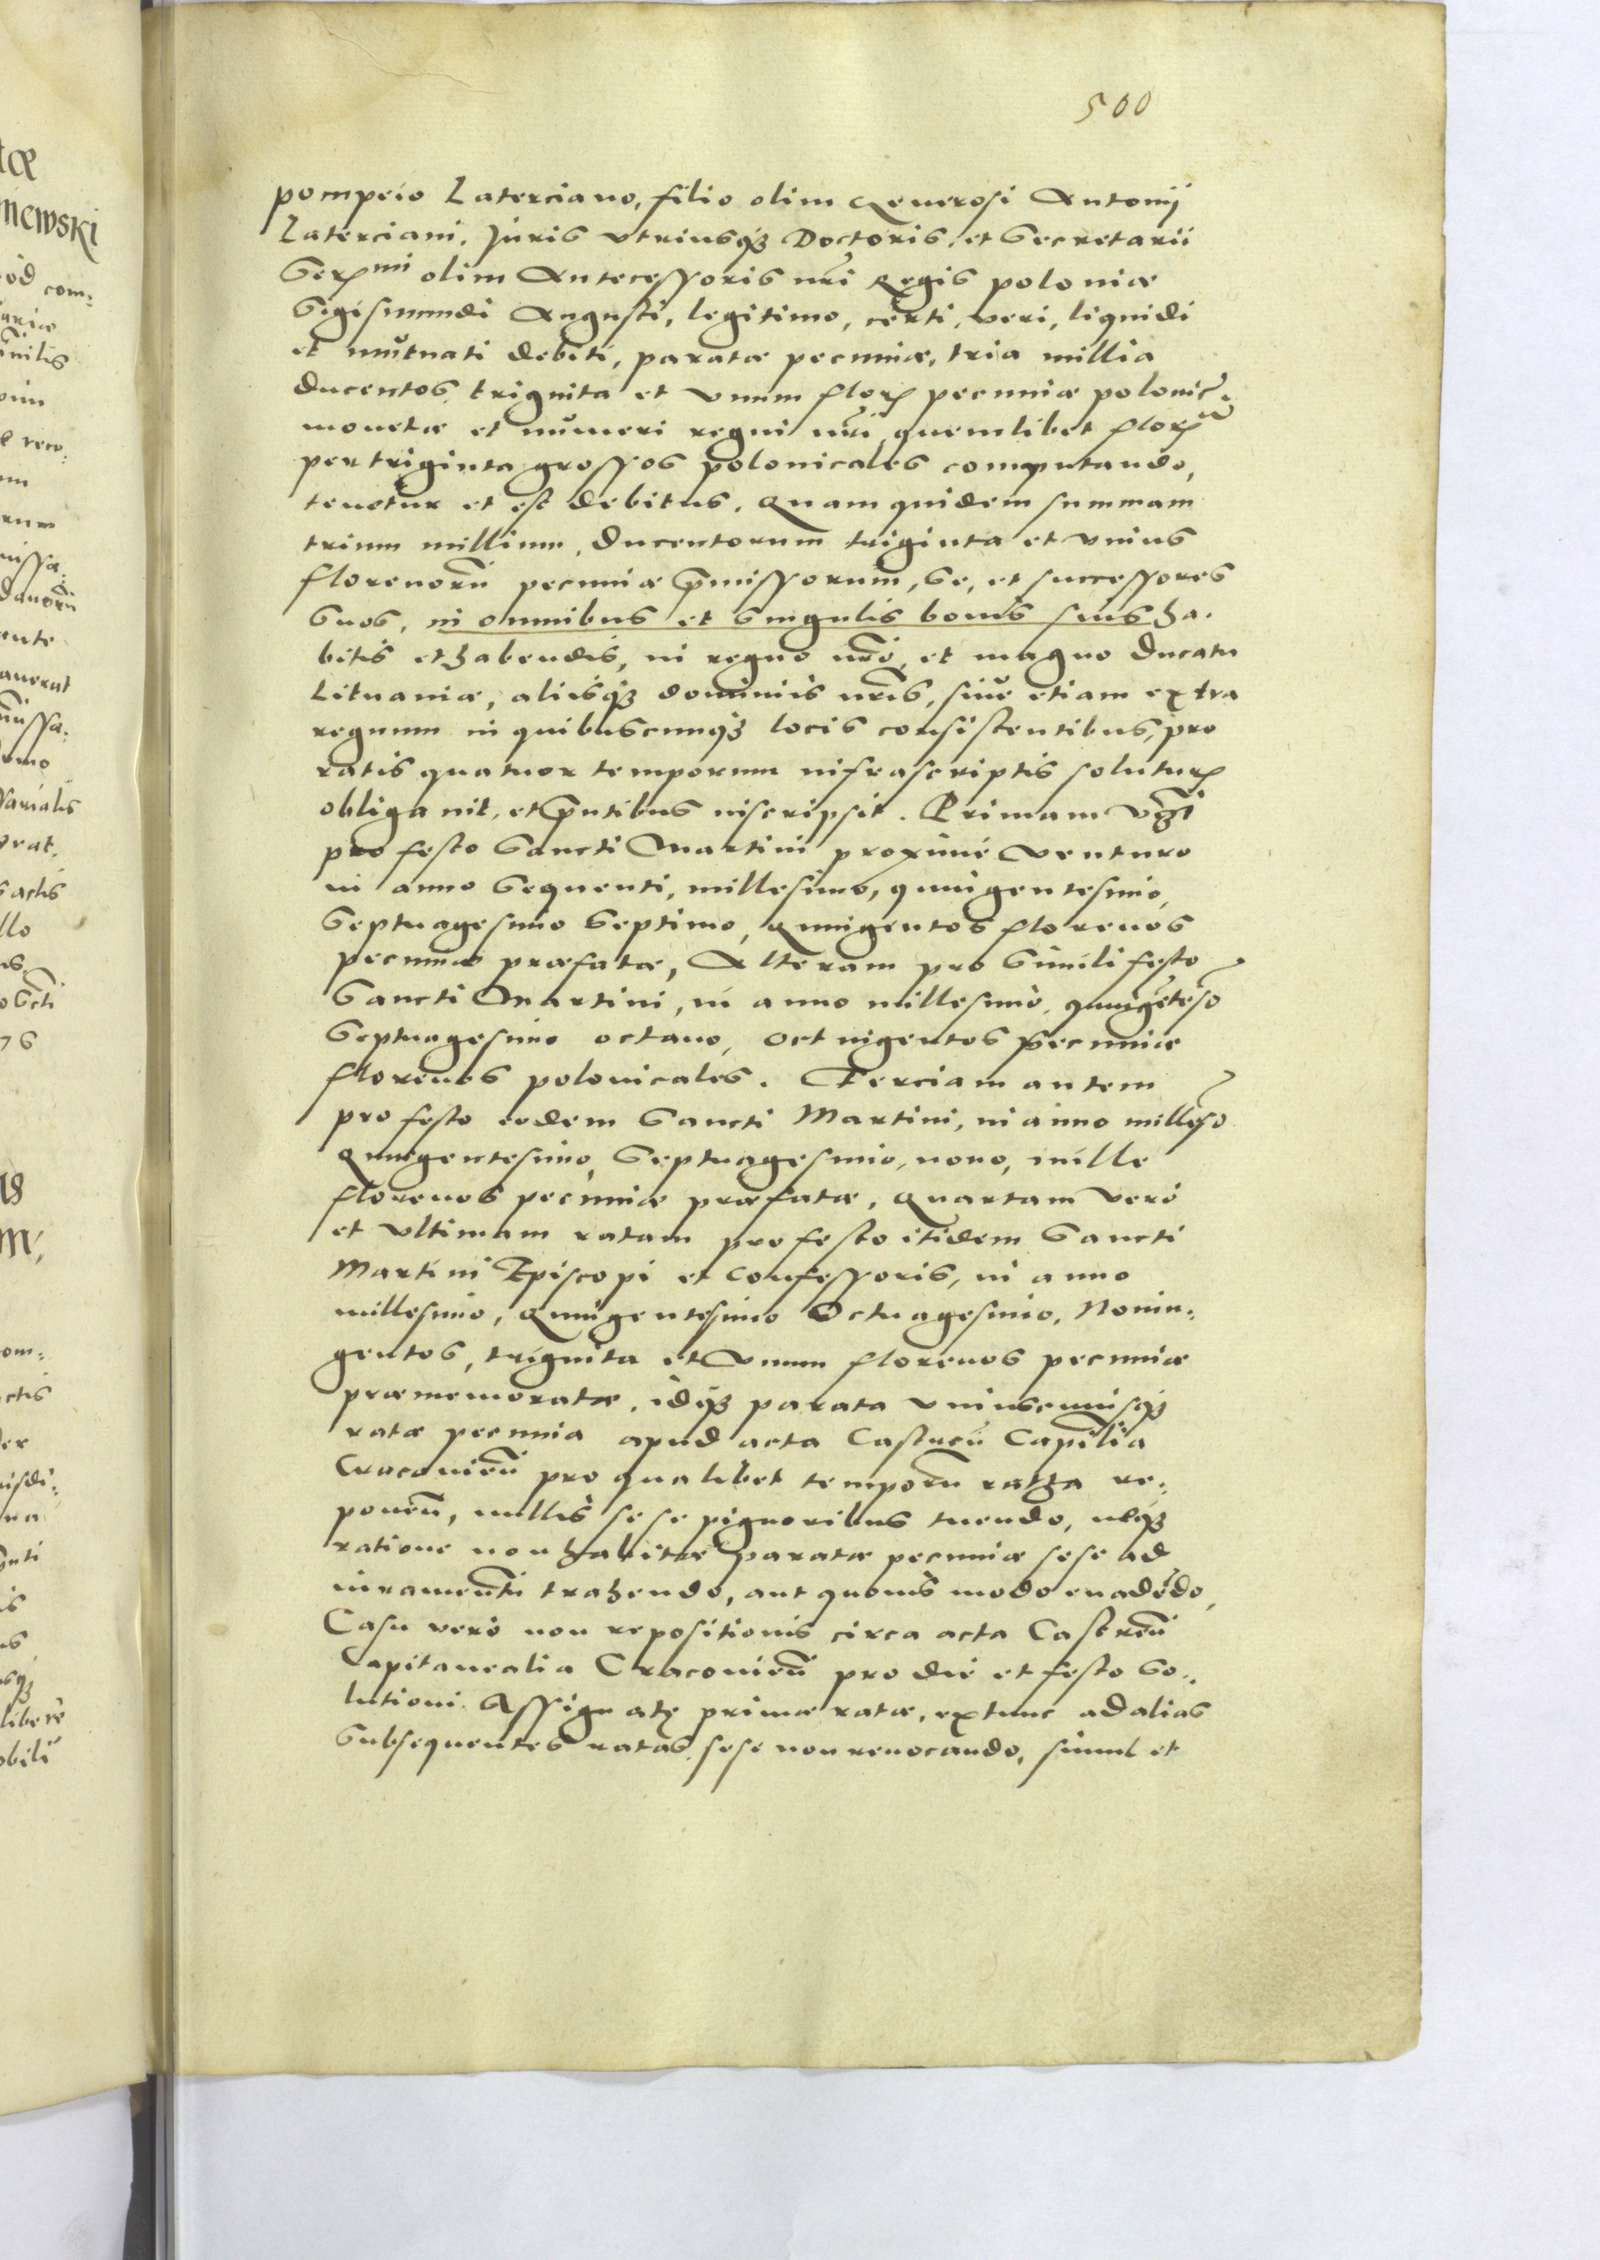 500
pompeio Laterciano, filio olim Generosi Antonij
Laterciani, Juris vtriusq3 Doctoris, et Secretarii
Serᵐⁱ olim Antecessoris nri Regis poloniæ
Sigismundi Augusti, legitimo, certi, veri, liquidi
et mutuati debiti, paratæ pecuniæ, tria millia
ducentos, triginta et vnum flor pecuniæ polonic.
monetæ et numeri regni nri, quemlibet flor
per triginta grossos polonicales computando,
tenetur et est debitus. Quam quidem summam
trium millium, ducentorum triginta et vnius
florenorũ pecuniæ p̃missorum, se, et successores
suos, in omnibus et singulis bonis suis ha.
bitis et habendis, in regno nrõ, et magno ducatu
Lituaniæ, aliisq3 dominiis nris, siue etiam extra
regnum in quibuscunq3 locis consistentibus, pro
ratis quatuor temporum infrascriptis solutur
obligauit, et p̃ntibus inscripsit. Primam vz̃
pro festo Sancti Martini proximè venturo
in anno sequenti, millesimo, quingentesimo,
septuagesimo septimo, quingentos florenos
pecuniæ præfatæ, Alteram pro simili festo
Sancti Martini, in anno millesimo, quingẽtesõ
septuagesimo octauo, octingentos pecuniæ
florenos polonicales. Terciam autem
pro festo eodem Sancti Martini, in anno millesõ
Quingentesimo, septuagesimo, nono, mille
florenos pecuniæ præfatæ, Quartam verò
et vltimam ratam pro festo itidem Sancti
Martini Episcopi et Confessoris, in anno
millesimo, Quingentesimo Octuagesimo, Nonin:
gentos, triginta et vnum florenos pecuniæ
præmemoratæ, idq3 parata vniuscuiusq3
ratæ pecunia apud acta Castreñ Capitlia
Cracouieñ pro qualibet temporũ rata re:
poneñ, nullis sese pignoribus tuendo, neq3
ratione non habitæ paratæ pecuniæ sese ad
iuramentũ trahendo, aut quouis modo euadẽdo,
Casu verò non repositionis circa acta Castreñ
Capitanealia Cracouieñ pro die et festo so:
lutioni Assignatę primæ ratæ, extunc ad alias
subsequentes ratas sese non reuocando, simul et